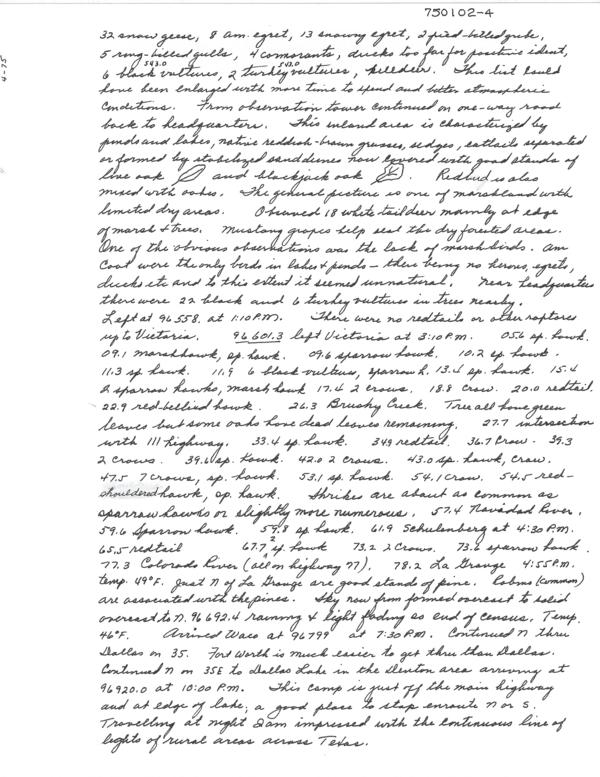 750102-4
4-75
32 snow geese, 8 am. egret, 13 snowy egret, 2 pied-billed grebe,
5 ring-billed gulls, 4 cormorants, ducks too far for positive ident,
543.0 543.0
6 black vultures, 2 turkey vultures, killdeer. This list could
have been enlarged with more time to spend and better atmospheric
conditions. From observation tower continued on one-way road
back to headquarters. This inland area is characterized by
ponds and lakes, native reddish-brown grasses, sedges, cattails separated
or formed by stabilized sand dunes now covered with good stands of
live oak and blackjack oak. Redbud is also
mixed with oaks. The general picture is one of marshland with
limited dry areas. Observed 18 white tail deer mainly at edge
of marsh & trees. Mustang grapes help seal the dry forested areas.
One of the obvious observations was the lack of marsh birds. Am
Coot were the only birds in lakes & ponds - there being no herons, egrets,
ducks etc and to this extent it seemed unnatural. Near headquarters
there were 22 black and 6 turkey vultures in trees nearby.
Left at 96558. at 1:10 P.M. There were no redtails or other raptores
up to Victoria. 96601.3 left Victoria at 3:10 P.M. 05.6 sp. hawk.
09.1 marsh hawk, sp. hawk. 09.6 sparrow hawk. 10.2 sp. hawk.
11.3 sp hawk. 11.9 6 black vultures, sparrow h. 13.4 sp. hawk. 15.4
2 sparrow hawks, marsh hawk 17.4 2 crows. 18.8 crow. 20.0 redtail.
22.9 red-bellied hawk. 26.3 Brushy Creek. Tree all have green
leaves but some oaks have dead leaves remaining. 27.7 intersection
with 111 highway. 33.4 sp. hawk. 34.9 redtail. 36.7 Crow. 39.3
2 crows. 39.6 sp. hawk. 42.0 2 crows. 43.0 sp. hawk, crow.
47.5 7 crows, sp. hawk. 53.1 sp. hawk. 54.1 crow. 54.5 red-
shouldered hawk, sp. hawk. Shrikes are about as common as
sparrow hawks or slightly more numerous. 57.4 Navidad River.
59.6 Sparrow hawk. 59.8 sp hawk. 61.9 Schulenberg at 4:30 P.M.
65.5 redtail 67.7 2 sp. hawk 73.2 2 Crows. 73.6 sparrow hawk.
77.3 Colorado River (all on highway 77). 78.2 La Grange 4:55 P.M.
temp. 49°F. Just N of La Grange are good stands of pine. Robins (common)
are associated with the pines. Sky now from formed overcast to solid
overcast to N. 96692.4 raining & light fading so end of census. Temp.
46°F. Arrived Waco at 96799 at 7:30 P.M. Continued N thru
Dallas on 35. Fort Worth is much easier to get thru than Dallas.
Continued N on 35E to Dallas Lake in the Denton area arriving at
96920.0 at 10:00 P.M. This camp is just off the main highway
and at edge of lake, a good place to stop enroute N or S.
Travelling at night I am impressed with the continuous line of
lights of rural areas across Texas.